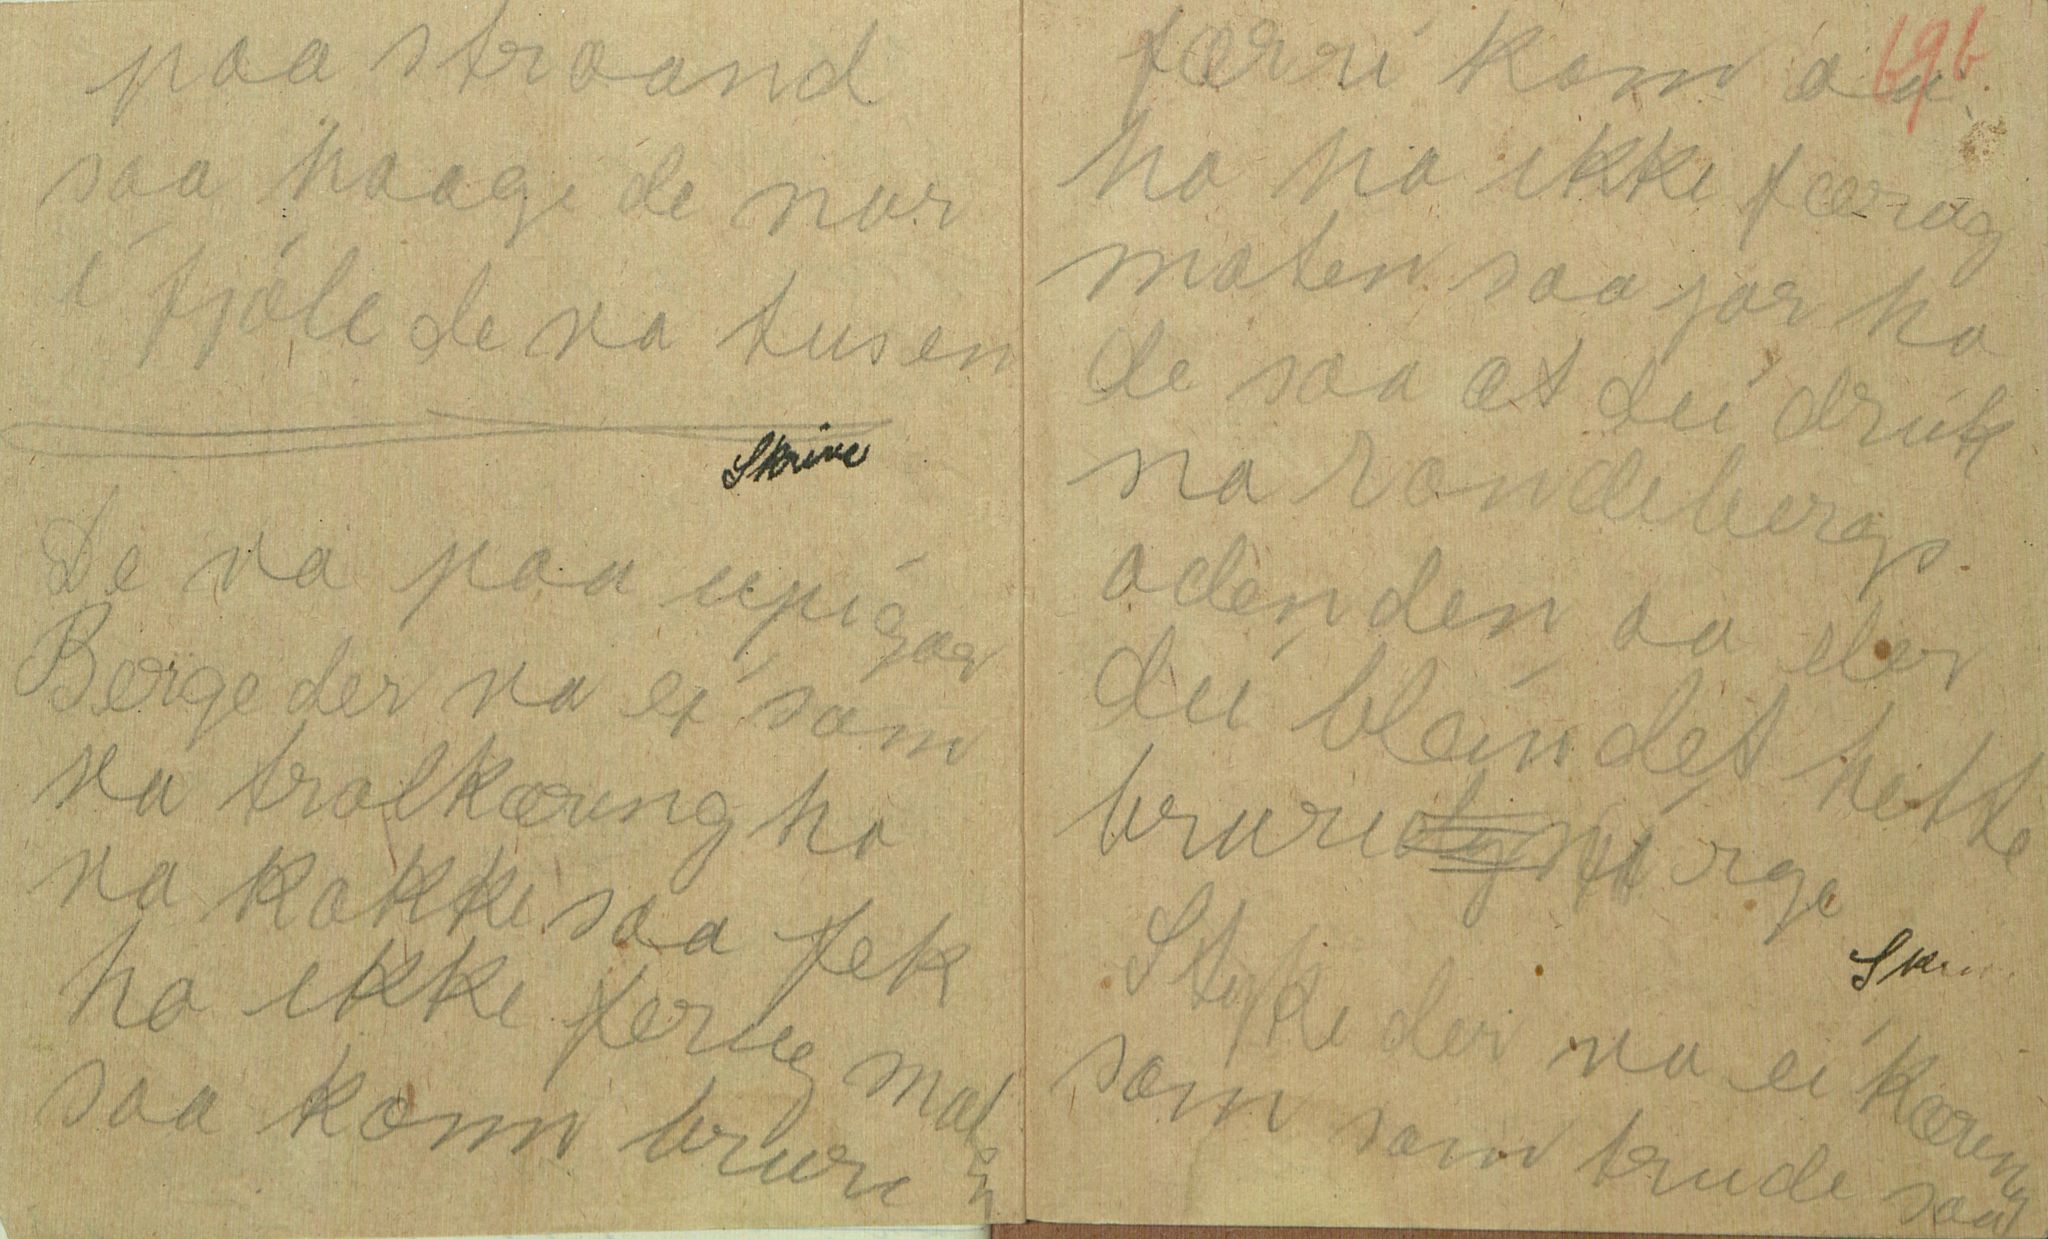 paa straand
saa haage de nur
i fjöle de va tusen
Skrive
De va paa upigar
Berge der va ei som
va trolkæring ho
va kokke saa fek
ho ikke ferug maten
saa kom brure
696
færri kom aa
ho ha ikke færug
maten saa jor ho
de saa at dei druk
na randebergs
adenden aa der
dei bleindet hette
brure rge
Skriv
Stykke der va ei kæreng
som som trude saa